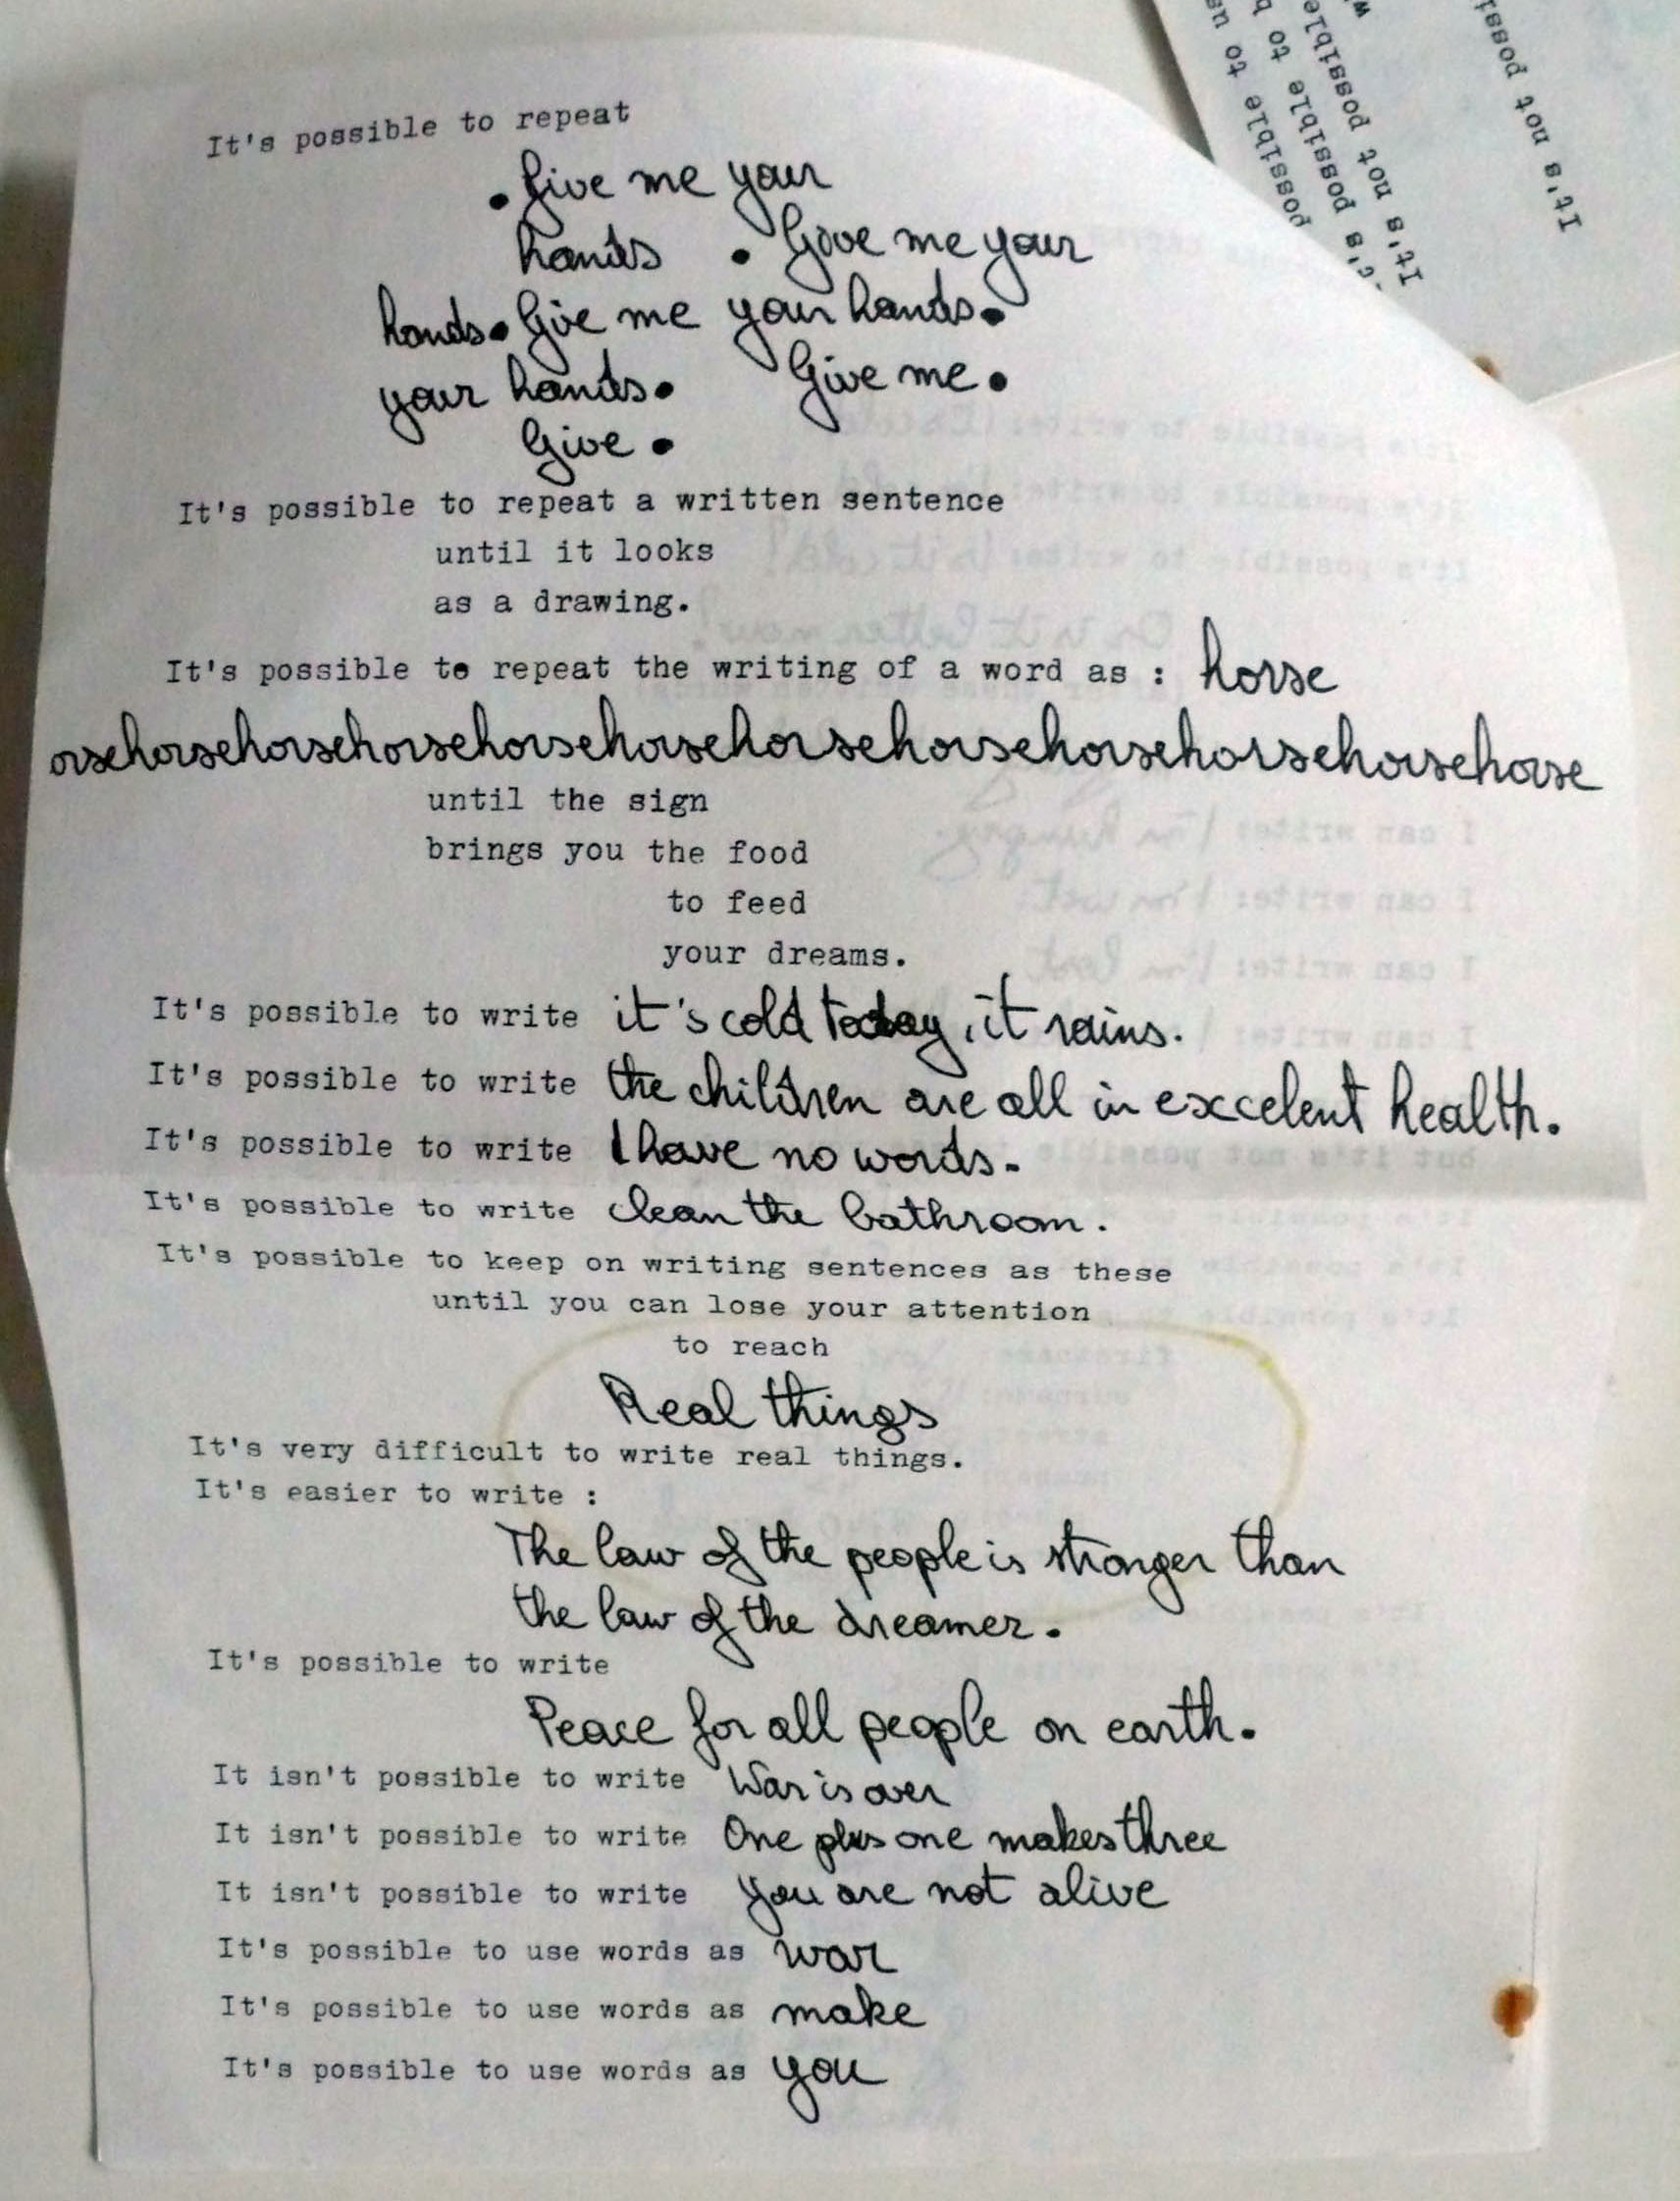 It's possible to repeat
• Give me your
hands • Give me your
hands. Give me your hands.
your hands. Give me.
Give.
It's possible to repeat a written sentence
until it looks
as a drawing.
It's possible to repeat the writing of a word as : horse
orsehorsehorsehorsehorsehorsehorsehorsehorsehorsehorsehorse
until the sign
brings you the food
to feed
your dreams.
It's possible to write it's cold today, it rains.
It's possible to write the children are all in excelent health.
It's possible to write I have no words.
It's possible to write clean the bathroom.
It's possible to keep on writing sentences as these
until you can lose your attention
to reach
Real things
It's very difficult to write real things.
It's easier to write :
The law of the people is stronger than
the law of the dreamer.
It's possible to write
Peace for all people on earth.
It isn't possible to write War is over
It isn't possible to write One plus one makes three
It isn't possible to write You are not alive
It's possible to use words as war
It's possible to use words as make
It's possible to use words as you
It's not possi
It's not possible
possible to b
possible to us